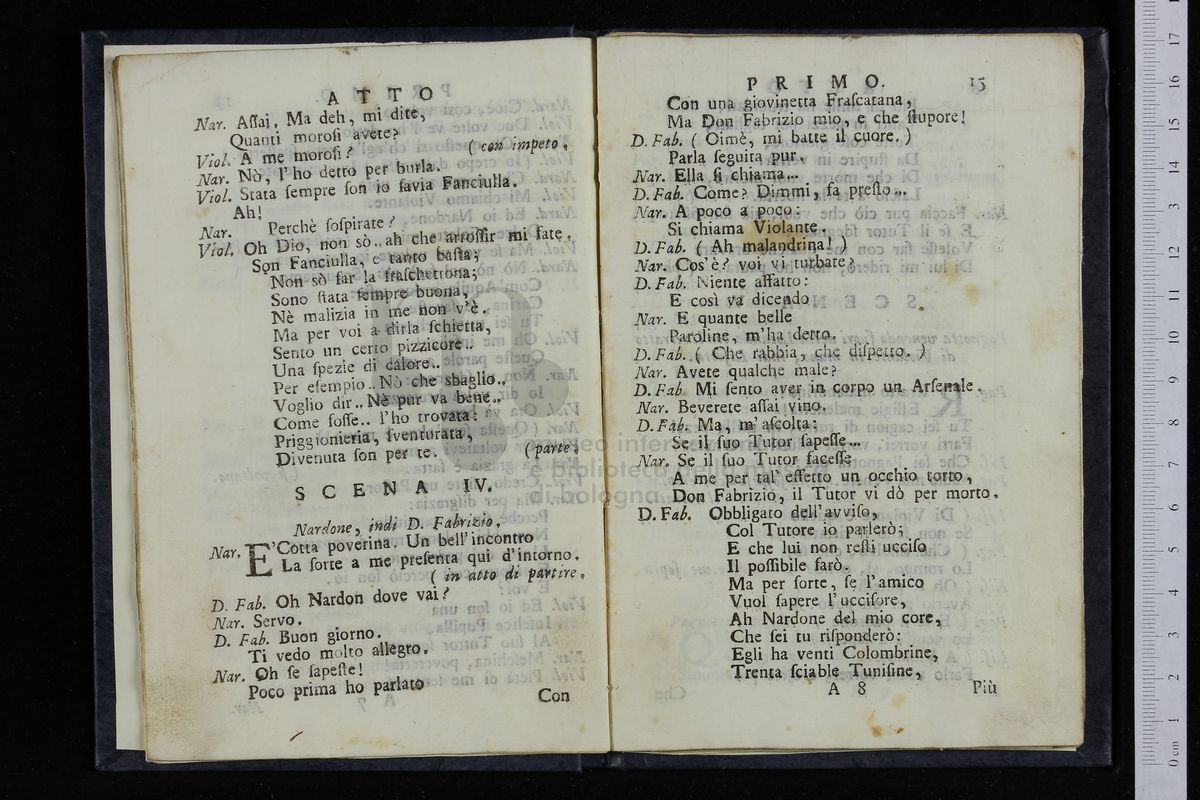 ATTO
Nar. Aſſai. Ma deh, mi dite,
Quanti moroſi avete?
Viol. A me moroſi? (con impeto.
Nar. Nò, l'ho detto per burla.
Viol. Stata ſempre ſon io ſavia Fanciulla.
Ah!
Nar. Perchè ſoſpirate?
Viol. Oh Dio, non sò.. ah che arroſſir mi fate.
Son Fanciulla, e tanto baſta;
Non sò far la fraſchettona;
Sono ſtata ſempre buona,
Nè malizia in me non v'è.
Ma per voi a dirla ſchietta,
Sento un certo pizzicore..
Una ſpezie di calore..
Per eſempio.. Nò che sbaglio..
Voglio dir.. Nè pur va bene..
Come foſſe.. l'ho trovata:
Priggionieria, ſventurata,
Divenuta ſon per te. (parte.
SCENA IV.
Nardone, indi D. Fabrizio.
Nar. E'Cotta poverina. Un bell'incontro
La ſorte a me preſenta qui d'intorno.
(in atto di partire.
D. Fab. Oh Nardon dove vai?
Nar. Servo.
D. Fab. Buon giorno.
Ti vedo molto allegro.
Nar. Oh ſe ſapeſte!
Poco prima ho parlato
Con
PRIMO. 15
Con una giovinetta Fraſcatana,
Ma Don Fabrizio mio, e che ſtupore!
D. Fab. (Oimè, mi batte il cuore.)
Parla ſeguita pur.
Nar. Ella ſi chiama...
D. Fab. Come? Dimmi, fa preſto...
Nar. A poco a poco:
Si chiama Violante.
D. Fab. (Ah malandrina!)
Nar. Cos'è? voi vi turbate?
D. Fab. Niente affatto:
E così va dicendo
Nar. E quante belle
Paroline, m'ha detto.
D. Fab. (Che rabbia, che diſpetto.)
Nar. Avete qualche male?
D. Fab. Mi ſento aver in corpo un Arſenale.
Nar. Beverete aſſai vino.
D. Fab. Ma, m'aſcolta:
Se il ſuo Tutor ſapeſſe...
Nar. Se il ſuo Tutor faceſſe
A me per tal' effetto un occhio torto,
Don Fabrizio, il Tutor vi dò per morto.
D. Fab. Obbligato dell'avviſo,
Col Tutore io parlerò;
E che lui non reſti ucciſo
Il poſſibile farò.
Ma per ſorte, ſe l'amico
Vuol ſapere l'ucciſore,
Ah Nardone del mio core,
Che ſei tu riſponderò:
Egli ha venti Colombrine,
Trenta ſciable Tuniſine,
A 8 Più